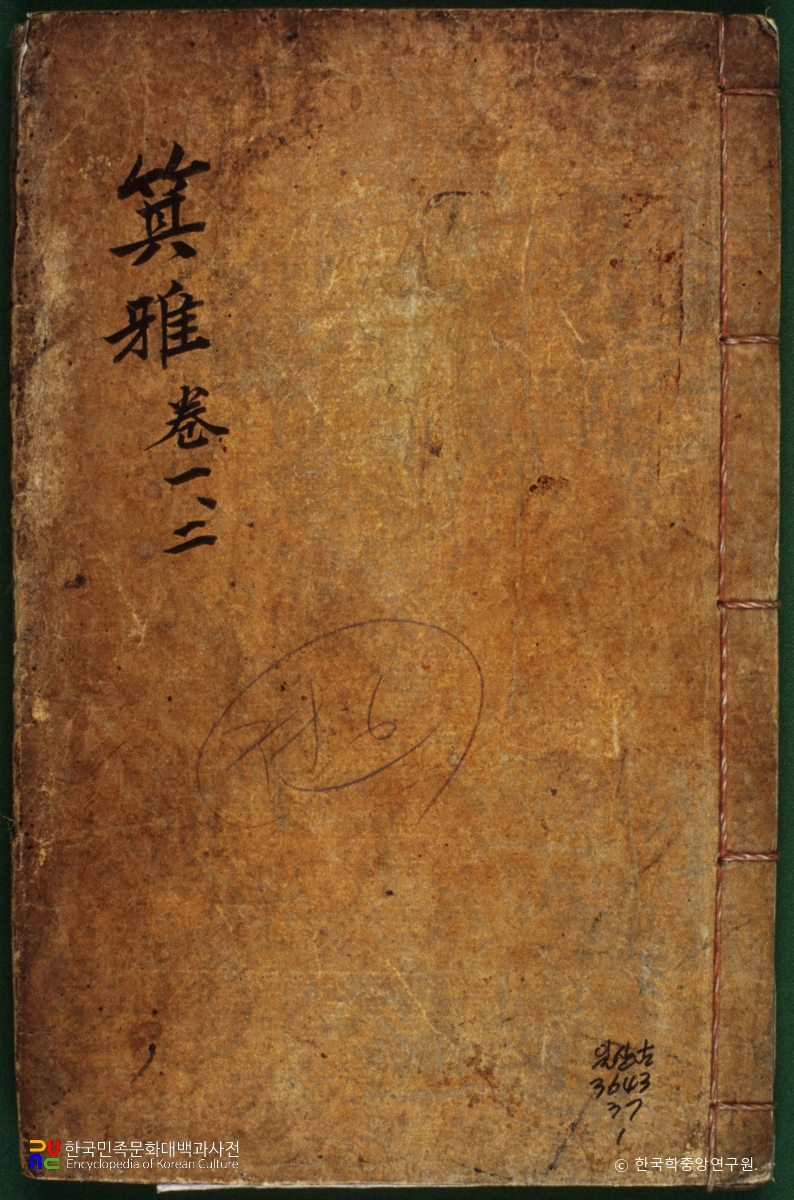 箕雅 卷一、二
전6
일산古
3643
37
1
한국민족문화대백과사전
Encyclopedia of Korean Culture
© 한국학중앙연구원.